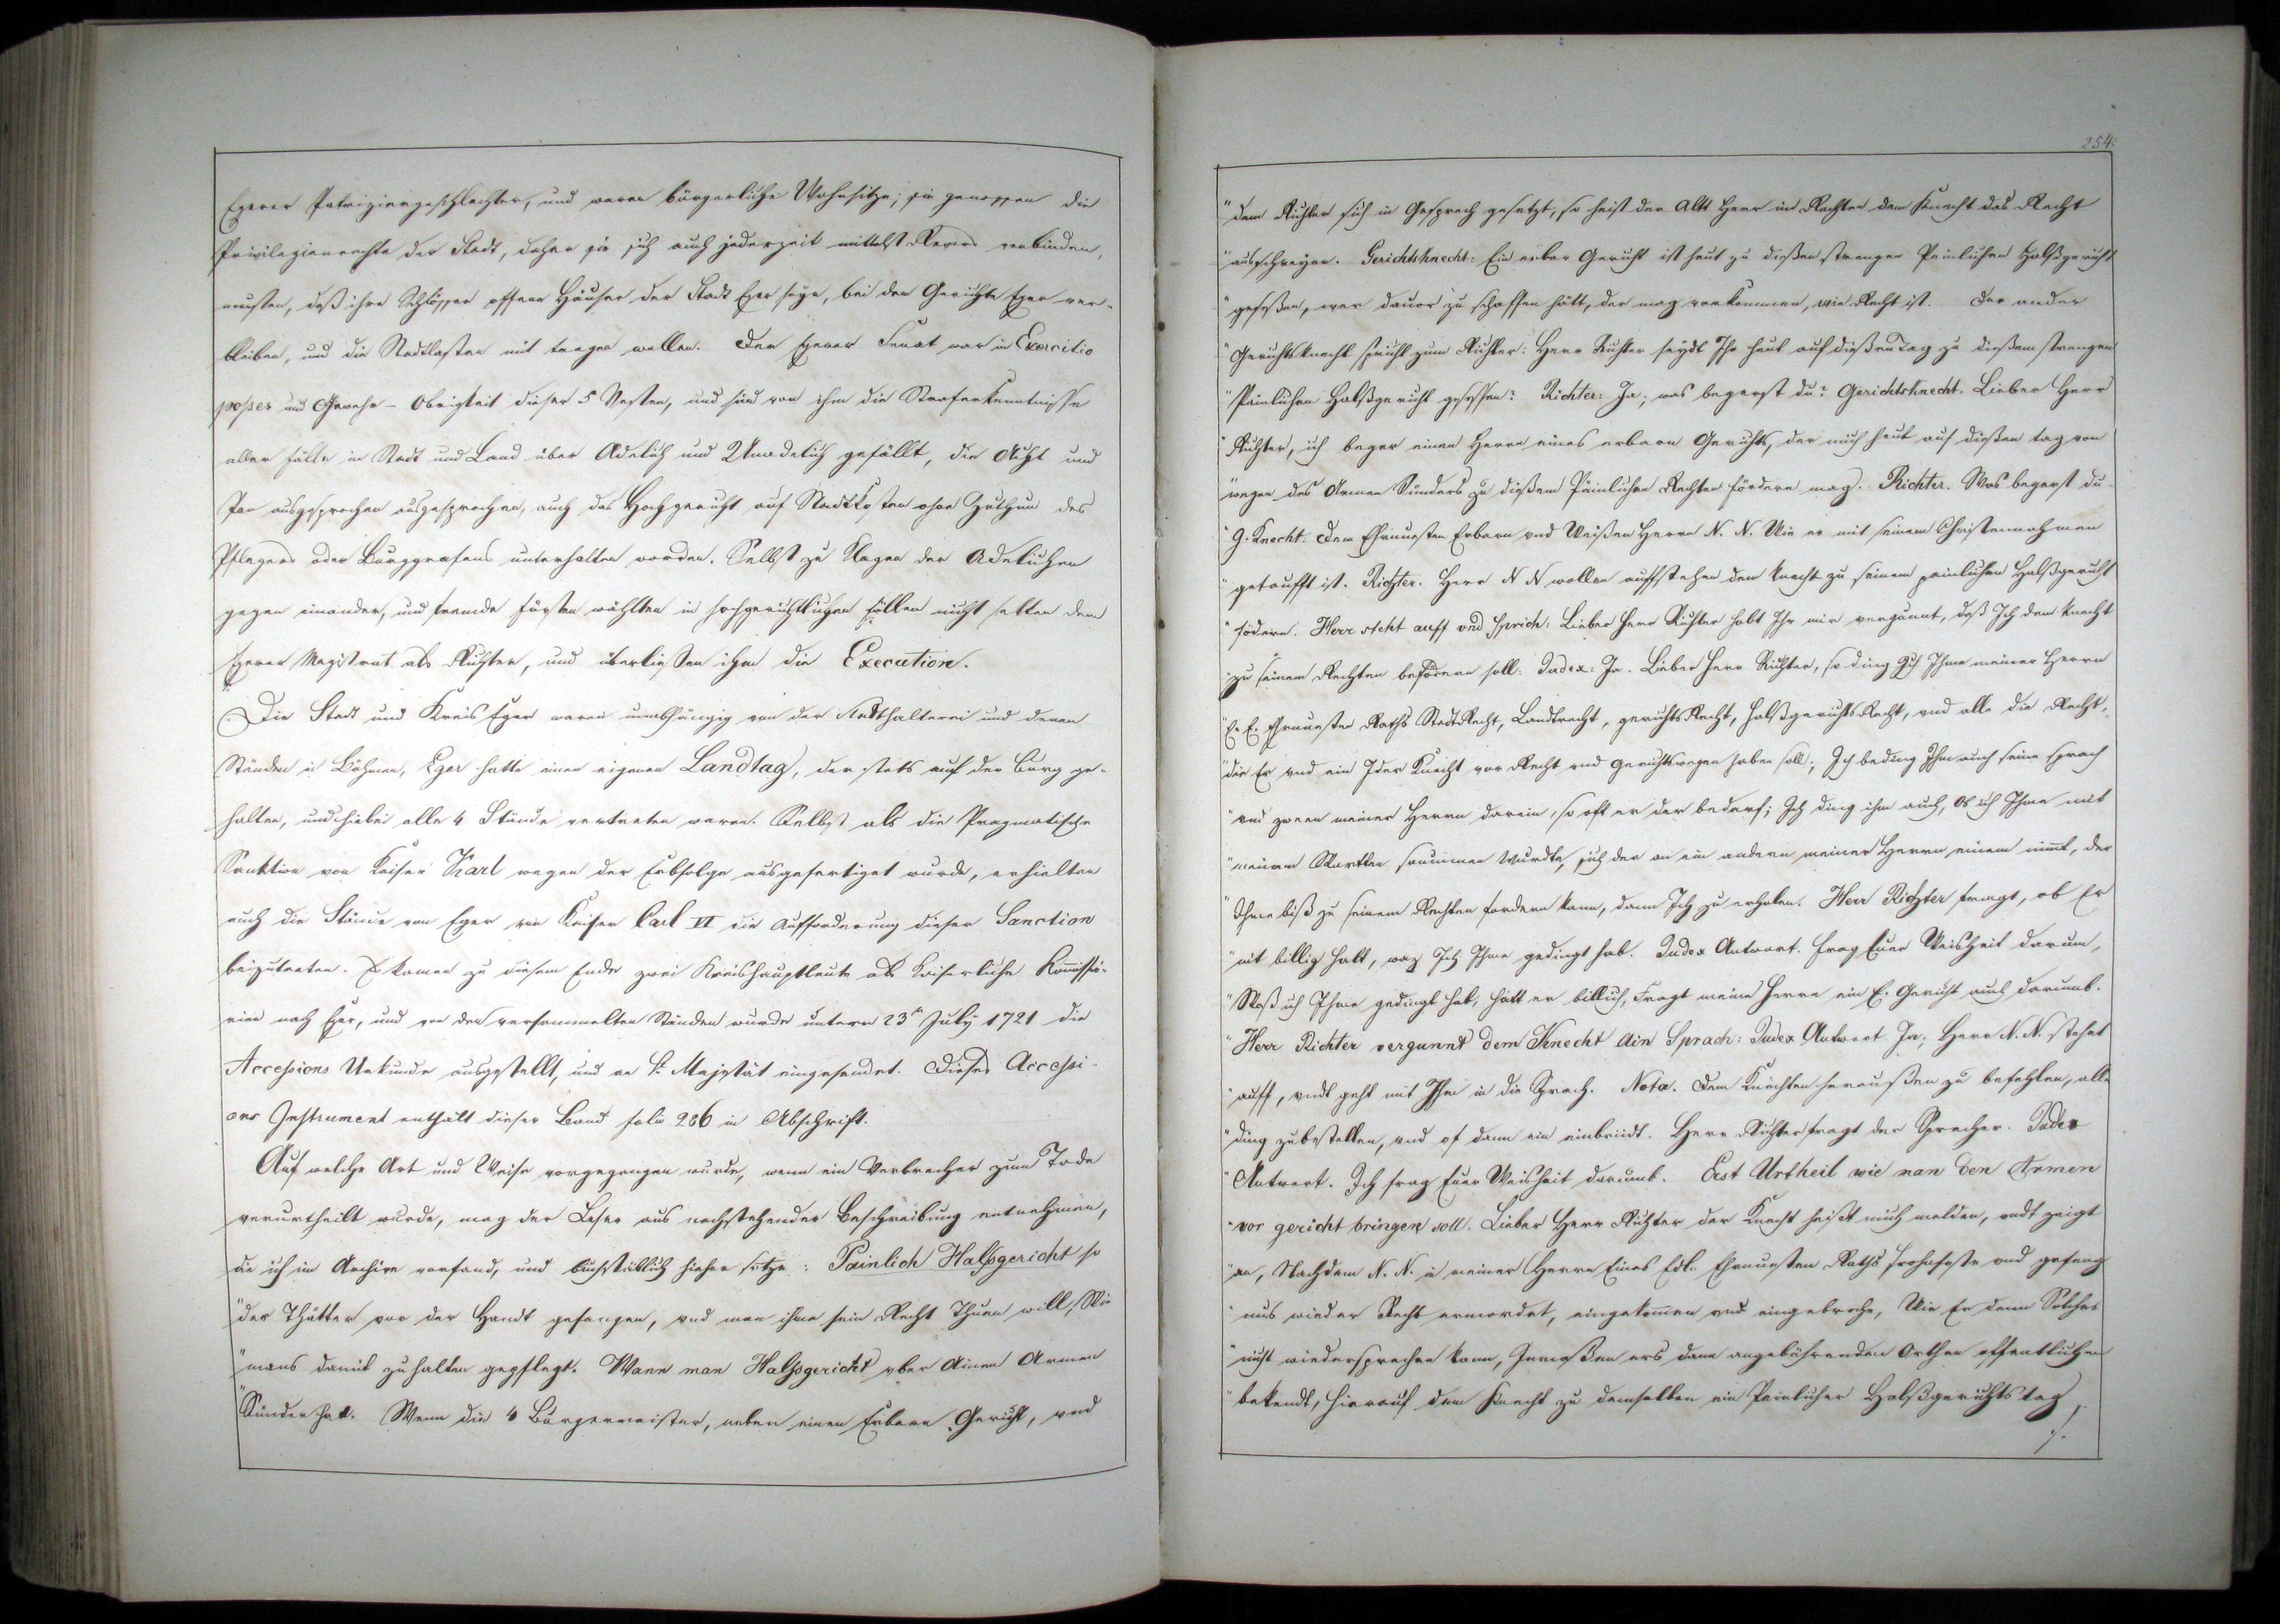 Egerer Patriziergeschlechter, und waren bürgerliche Wohnsitze; sie genossen die
Privilegienrechte der Stadt, daher sie sich auch jederzeit mittelst Revers verbinden
mußten, daß ihre Schlösser offene Häuser der Stadt Eger seyn, bei den Gerichte Eger ver-
bleiben, und die Stadtlasten mit tragen wollen. Der Egerer Senat war in Exercitio
posses und Gewehr-Obrigkeit dieser 5 Vesten, und sind von ihm die Straferkenntnisse
aller Fälle in Stadt und Land über Adelich und Unadelich gefällt, die Acht und
Pan ausgesprochen ausgesprochen, auch das Hochgericht auf Stadtkosten ohne Zuthun des
Pflegers oder Burggrafens unterhalten worden. Selbst zu Klagen der Adelichen
gegen einander, und fremde Fürsten wählten in hochgerichtlichen Fällen nicht selten den
Egerer Magistrat als Richter, und überließen ihm die Execution.
Die Stadt und Kreis Eger waren unabhängig von der Stadthalterei und denen
Ständen in Böhmen, Eger hatte einen eigenen Landtag, der stets auf der Burg ge-
halten, und hiebei alle 4 Stände vertreten waren. Selbst als die Pragmatische
Sanktion von Kaiser Karl wegen der Erbfolge ausgefertiget wurde, erhielten
auch die Stände von Eger von Kaiser Carl VI die Aufforderung dieser Sanction
beizutreten. Es kamen zu diesem Ende zwei Kreishauptleute als Kaiserliche Kommissä-
rien nach Eger, und von den versammelten Ständen wurde unterm 23ten July 1721 die
Accessions Urkunde ausgestellt, und an Sr. Majestät eingesendet. Dieses Accessi-
ons Instrument enthält dieser Band folio 286 in Abschrift.
Auf welche Art und Weise vorgegangen wurde, wenn ein Verbrecher zum Tode
verurtheilt wurde, mag der Leser aus nachstehender Beschreibung entnehmen,
die ich im Archive vorfand, und buchstäblich hieher setze: Painlich Halßgericht so
"der Thätter vor der Handt gefangen, vnd man ihme sein Recht Thuen will, Wie
"mans damit zu halten gepflegt. Wann man Halßgericht vber Ainen Armen
"Sünder hat. Wenn die 4 Bürgermeister, neben einen Erbarn Gericht, vnd
254.
"dem Richter sich in Gesprech gesetzt, so heist der Alte Herr im Rechten dem Knecht das Recht
"ausschreyen. Gerichtsknecht: Ein erbar Gericht ist heut zu dießen strengen Peinlichen Halßgericht
"geseßen, wer davor zu schaffen hätt, der mag vorkommen, wie Recht ist. Der ander
"Gerichtsknecht spricht zum Richter: Herr Richter seydt Ihr heut auf dießen Tag zu dießem strengen
"Painlichen Halßgericht gesessen? Richter: Ja; was begerst du? Gerichtsknecht. Lieber Herr
"Richter, ich beger einen Herrn eines erbarn Gerichts, der mich heut auf dießen tag von
"wegen des Armen Sünders zu dießem Painlichen Rechten fördern mag. Richter. Was begerst du.
"G. Knecht: Den Ehrnuesten Erbarn vnd Weißen Herrn N. N. Wie er mit seinem Christennahmen
"getaufft ist. Richter. Herr N N wollen aufstehen dem Knecht zu seinem painlichen Halßgericht
"födern. Herr steht auff vnd sprich: Lieber Herr Richter habt Ihr mir vergünnt, daß Ich dem Knecht
"zu seinem Rechten befödern soll: Judex: Ja. Lieber Herr Richter, so ding Ich Ihme meiner Herrn
"E. E. Ehrnuesten Raths StadtRecht, Landtrecht, gerichtsRecht, HalßgerichtsRecht, vnd alle die Recht,
"die Er vnd ein Jder Knecht vor Recht vnd Gerichtswegen haben soll; Ich beding Ihm auch seine sprach
"vnd zween meiner Herrn darein, so oft er der bedarf; Ich ding ihm auch, Ob ich Ihme mit
"meinen Wortten saumen wurdte, sich der an ein andern meiner Herrn einem nimt, der
"Ihme biß zu seinem Rechten fordern kann, dann Ich zu erholen. Herr Richter fragt, ob Er
"nit billig halt, waz Ich Ihme gedingt hab. Judex Antwort. Frag Euer Weisheit darum,
"Waß ich Ihme gedingt hab, hatt er billich, Fragt meine Herrn ein E. Gericht auch darumb.
"Herr Richter vergunnt dem Knecht Ain Sprach: Judex Antwort Ja; Herr N. N. stehet
"auff, vndt geht mit Ihm in die Sprach. Nota. Dem Knechten heraußen zu befehlen, alle
"ding zubestellen, vnd of dann ein einbriidt. Herr Richter fragt der Sprecher. Judex
"Antwort. Ich frag Euer Weisheit darumb. Erst Urtheil wie man Den Armen
"vor gericht bringen soll. Lieber Herr Richter der Knecht heist mich melden, vndt zeigt
"an, Nachdem N. N. in meiner Herrn Eines Edl. Ehrnuesten Raths Frohnfeste vnd gefeng
"nus wieder Recht ermordet, eingekommen vnd eingebrocht, Wie Er denn Solches
"nicht wiedersprechen kann, Inmaßen ers dann angebührenden Orthen offentlichen
"bekendt, hierauf dem Knecht zu demselben ein Peinlicher Halßgerichts tag
./.